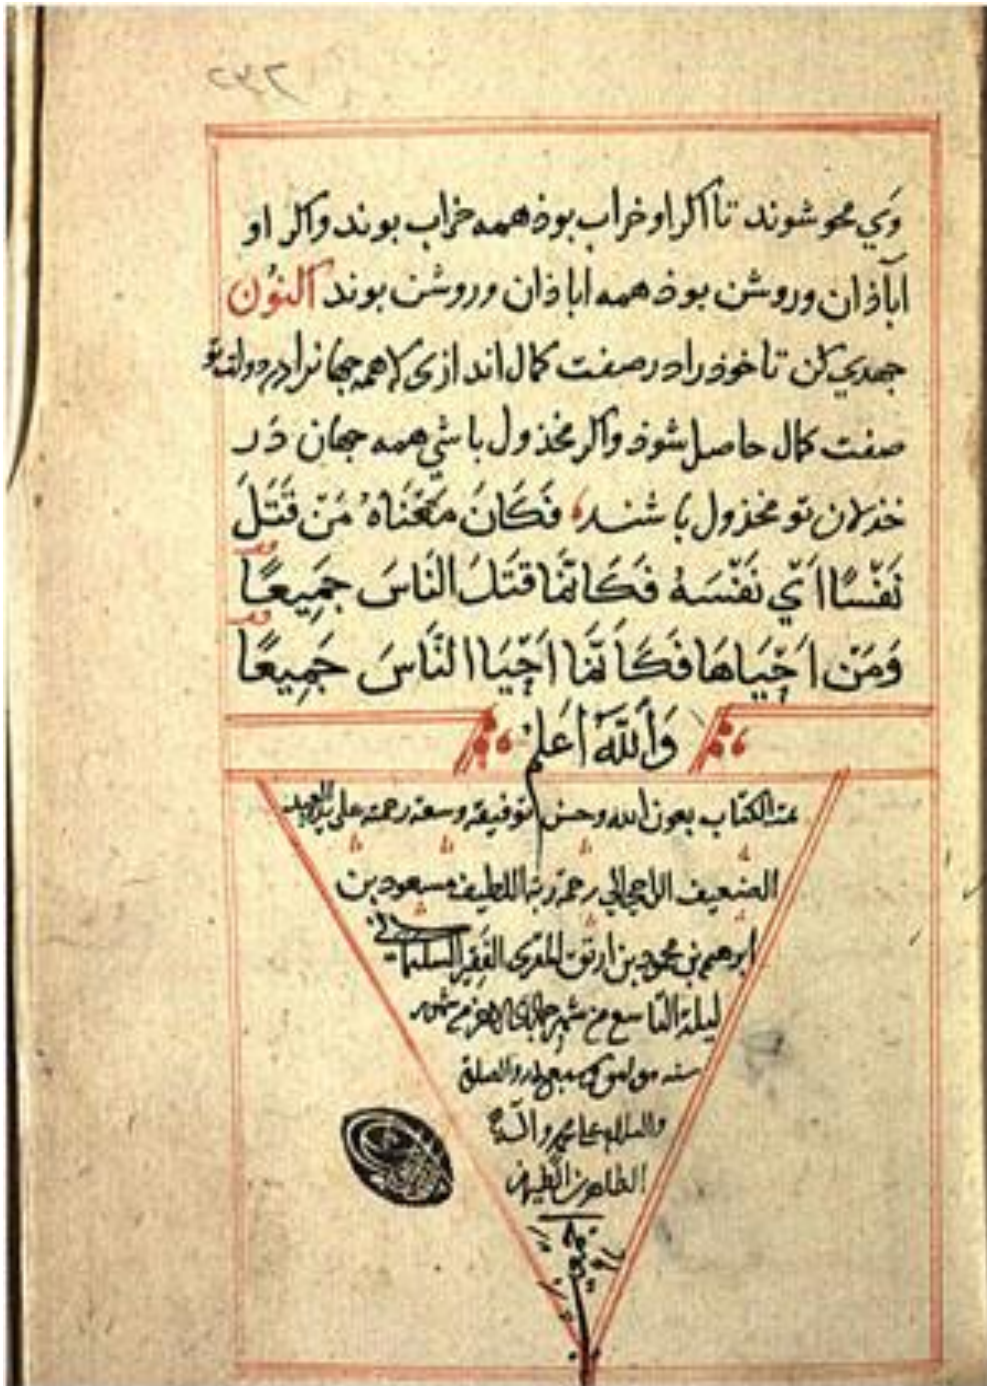 ٢٣٢
وَي محو شوند تا اكر او خراب بوذ همه خراب بوند واكر او
اباذان وروشن بوذ همه اباذان وروشن بوند اكنون
جهدي كن تا خوذ را در صفت كمال اندازى كه همه جهانرا در دولت تو
صفت كمال حاصل شوذ واكر مخذول باشي همه جهان دَر
خذلان تو مخذول باشند فَكَانَ مَعْنَاهُ مَنْ قَتَلَ
نَفْسًا اَيْ نَفْسَهُ فَكَاَنَّمَا قَتَلَ النَّاسَ جَمِيعًا
وَمَنْ اَحْيَاهَا فَكَاَنَّمَا اَحْيَا النَّاسَ جَمِيعًا
وَاَللّٰهُ اَعلم
الكتاب بعون الله وحسن توفيقه وسعة رحمته على يد العبد
الضعيف الراجي الي رحمة ربه اللطيف مسعود بن
ابرهيم بن محمود بن ارتق المقرى الفقير السلماني
ليلة التاسع من شهر جمادى
سنه والصلوة
والسلام على محمد وآله
الطاهرين